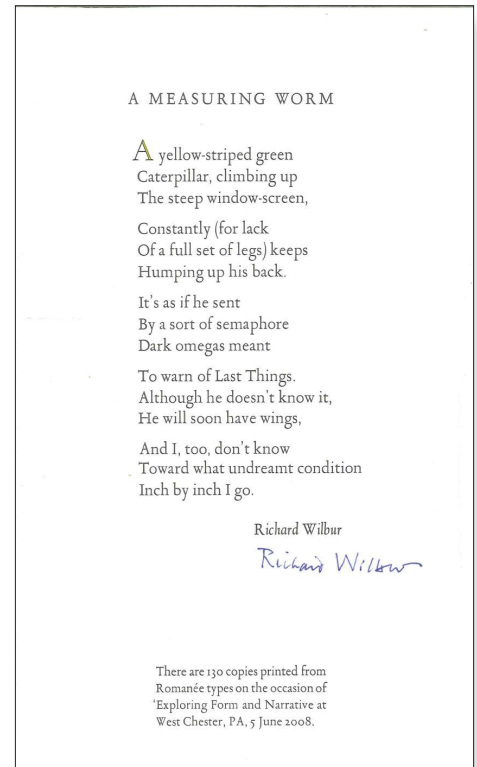 A MEASURING WORM
A yellow-striped green
Caterpillar, climbing up
The steep window-screen,
Constantly (for lack
Of a full set of legs) keeps
Humping up his back.
It's as if he sent
By a sort of semaphore
Dark omegas meant
To warn of Last Things.
Although he doesn't know it,
He will soon have wings,
And I, too, don't know
Toward what undreamt condition
Inch by inch I go.
Richard Wilbur
Richard Wilbur
There are 130 copies printed from
Romanée types on the occasion of
'Exploring Form and Narrative at
West Chester, PA, 5 June 2008.